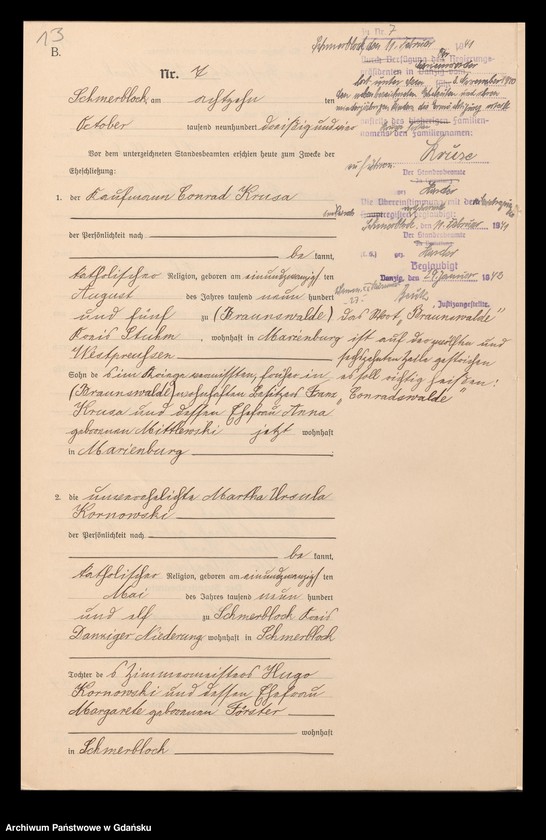 13
B.
Nr. 7
Schmerblock am achtzehn ten
October tausend neunhundert dreißig und vier
Vor dem unterzeichneten Standesbeamten erschien heute zum Zwecke der
Eheschließung:
1. der Kaufmann Conrad Krusa
der Persönlichkeit nach
be kannt,
katholischer Religion, geboren am einundzwanzig ten
August des Jahres tausend neun hundert
und fünf zu (Braunswalde)
Kreis Stuhm, wohnhaft in Marienburg
Westpreußen
Sohn des im Kriege vermißten, früher in
(Braunswalde) wohnhaften Besitzers Franz
Krusa und dessen Ehefrau Anna
geborenen Mittlewski jetzt wohnhaft
in Marienburg
2. die unverehelichte Martha Ursula
Kornowski
der Persönlichkeit nach
be kannt,
katholischer Religion, geboren am einundzwanzig ten
Mai des Jahres tausend neun hundert
und elf zu Schmerblock Kreis
Danziger Niederung wohnhaft in Schmerblock
Tochter des Zimmermeisters Hugo
Kornowski und dessen Ehefrau
Margarete geborenen Förster
wohnhaft
in Schmerblock
Zu Nr. 7
Schmerblock, den 11. Februar 1941
Durch Verfügung des Regierungs-
präsidenten in Danzig vom
hat unter dem November 1940
Familien-
namens den Familiennamen:
Kruse
zu führen.
Der Standesbeamte
gez. Harder
Die Übereinstimmung mit dem
beglaubigt:
Schmerblock, den 11. Februar 1941
Der Standesbeamte
(L.S.) gez. Harder
Beglaubigt
Danzig, den 29. Januar 1943
Justizangestellte.
Das Wort "Braunswalde"
ist auf der zwölften und
sechzehnten Zeile gestrichen
es soll richtig heißen:
"Conradswalde"
Archiwum Państwowe w Gdańsku